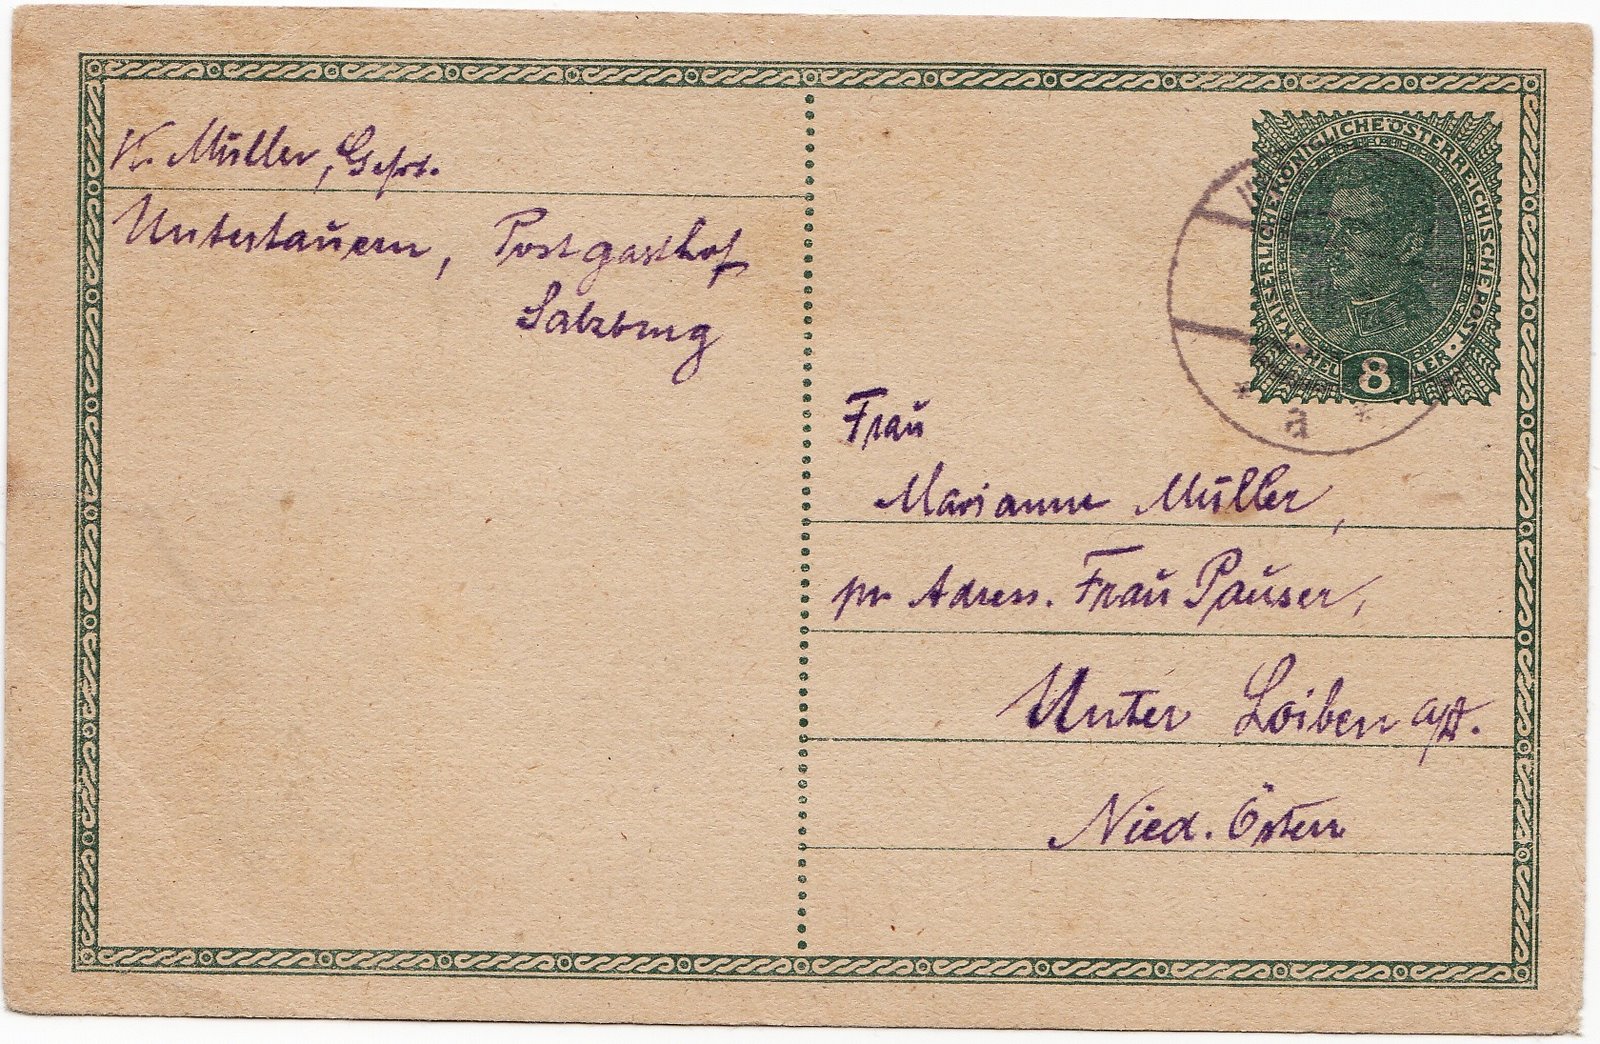 K. Müller, Gefrt.
Untertauern, Postgasthof
Salzburg
KAISERLICHE KÖNIGLICHE ÖSTERREICHISCHE POST
8
* a *
Frau
Marianne Müller,
pr Adress. Frau Pauser,
Unter Loiben a/D.
Nied. Österr